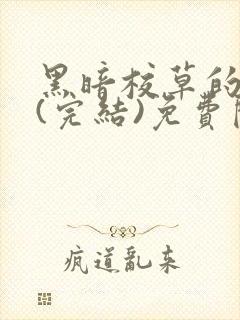 黑暗校草的
(完結)免費
疯道亂来